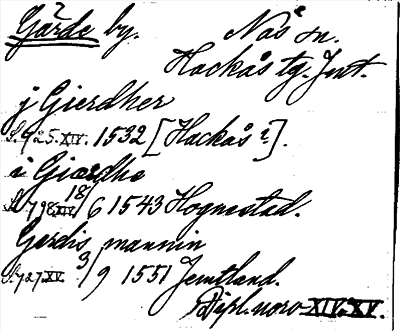 Gärde by. Näs sn.
Hackås tg. Jmt.
j Gierdher
S. 925. XIV. 1532 [Hackås?].
i Giærdhe
S. 798 XIV 18/6 1543 Hognestad.
Gerdis mannin
S. 727. XV. 3/9 1551 Jemtland.
Dipl. norv. XIV. XV.